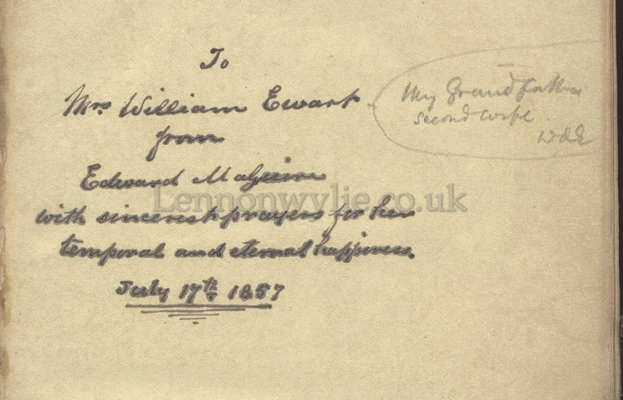 To
Mrs William Ewart
from
Edward Maguire
with sincerest prayers for her
temporal and eternal happiness.
July 17th 1857
My Grandfather
second wife
WQE
Lennonwylie.co.uk